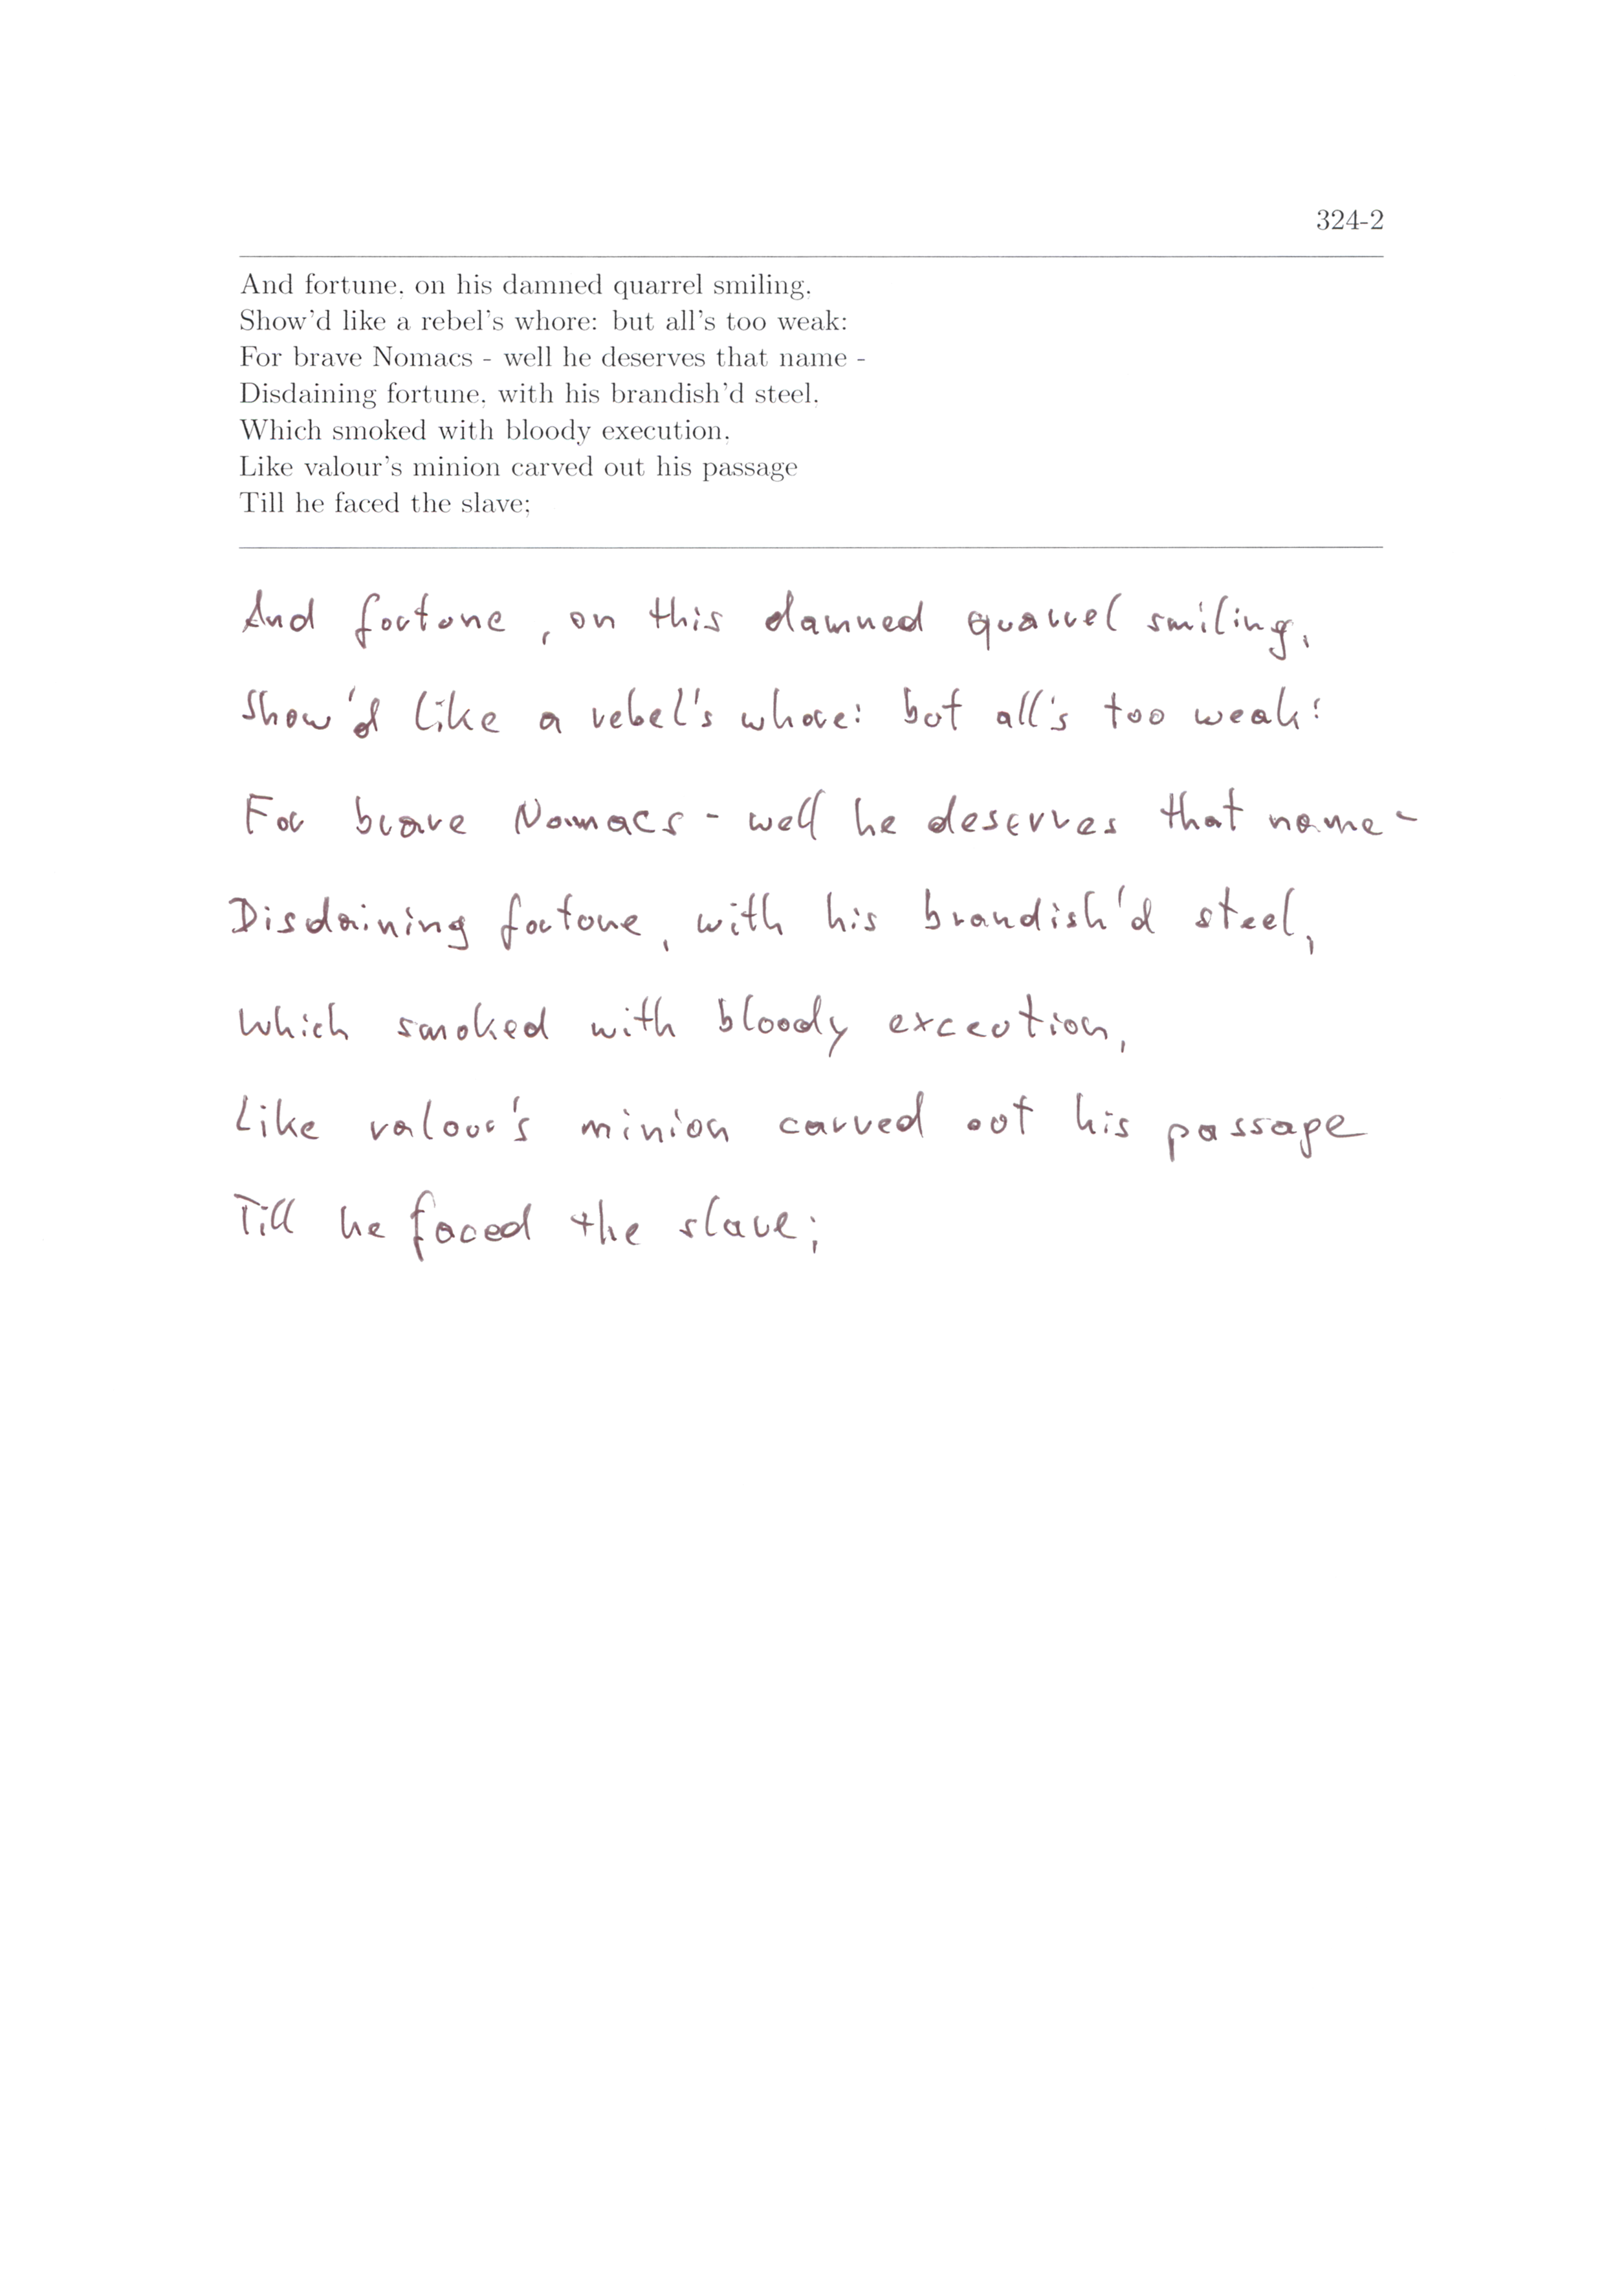 324-2
And fortune, on his damned quarrel smiling,
Show'd like a rebel's whore: but all's too weak:
For brave Nomacs - well he deserves that name -
Disdaining fortune, with his brandish'd steel,
Which smoked with bloody execution,
Like valour's minion carved out his passage
Till he faced the slave;
And fortune, on this damned quarrel smiling,
Show'd like a rebel's whore: but all's too weak:
For brave Nomacs - well he deserves that name -
Disdaining fortune, with his brandish'd steel,
Which smoked with bloody execution,
Like valour's minion carved out his passage
Till he faced the slave;